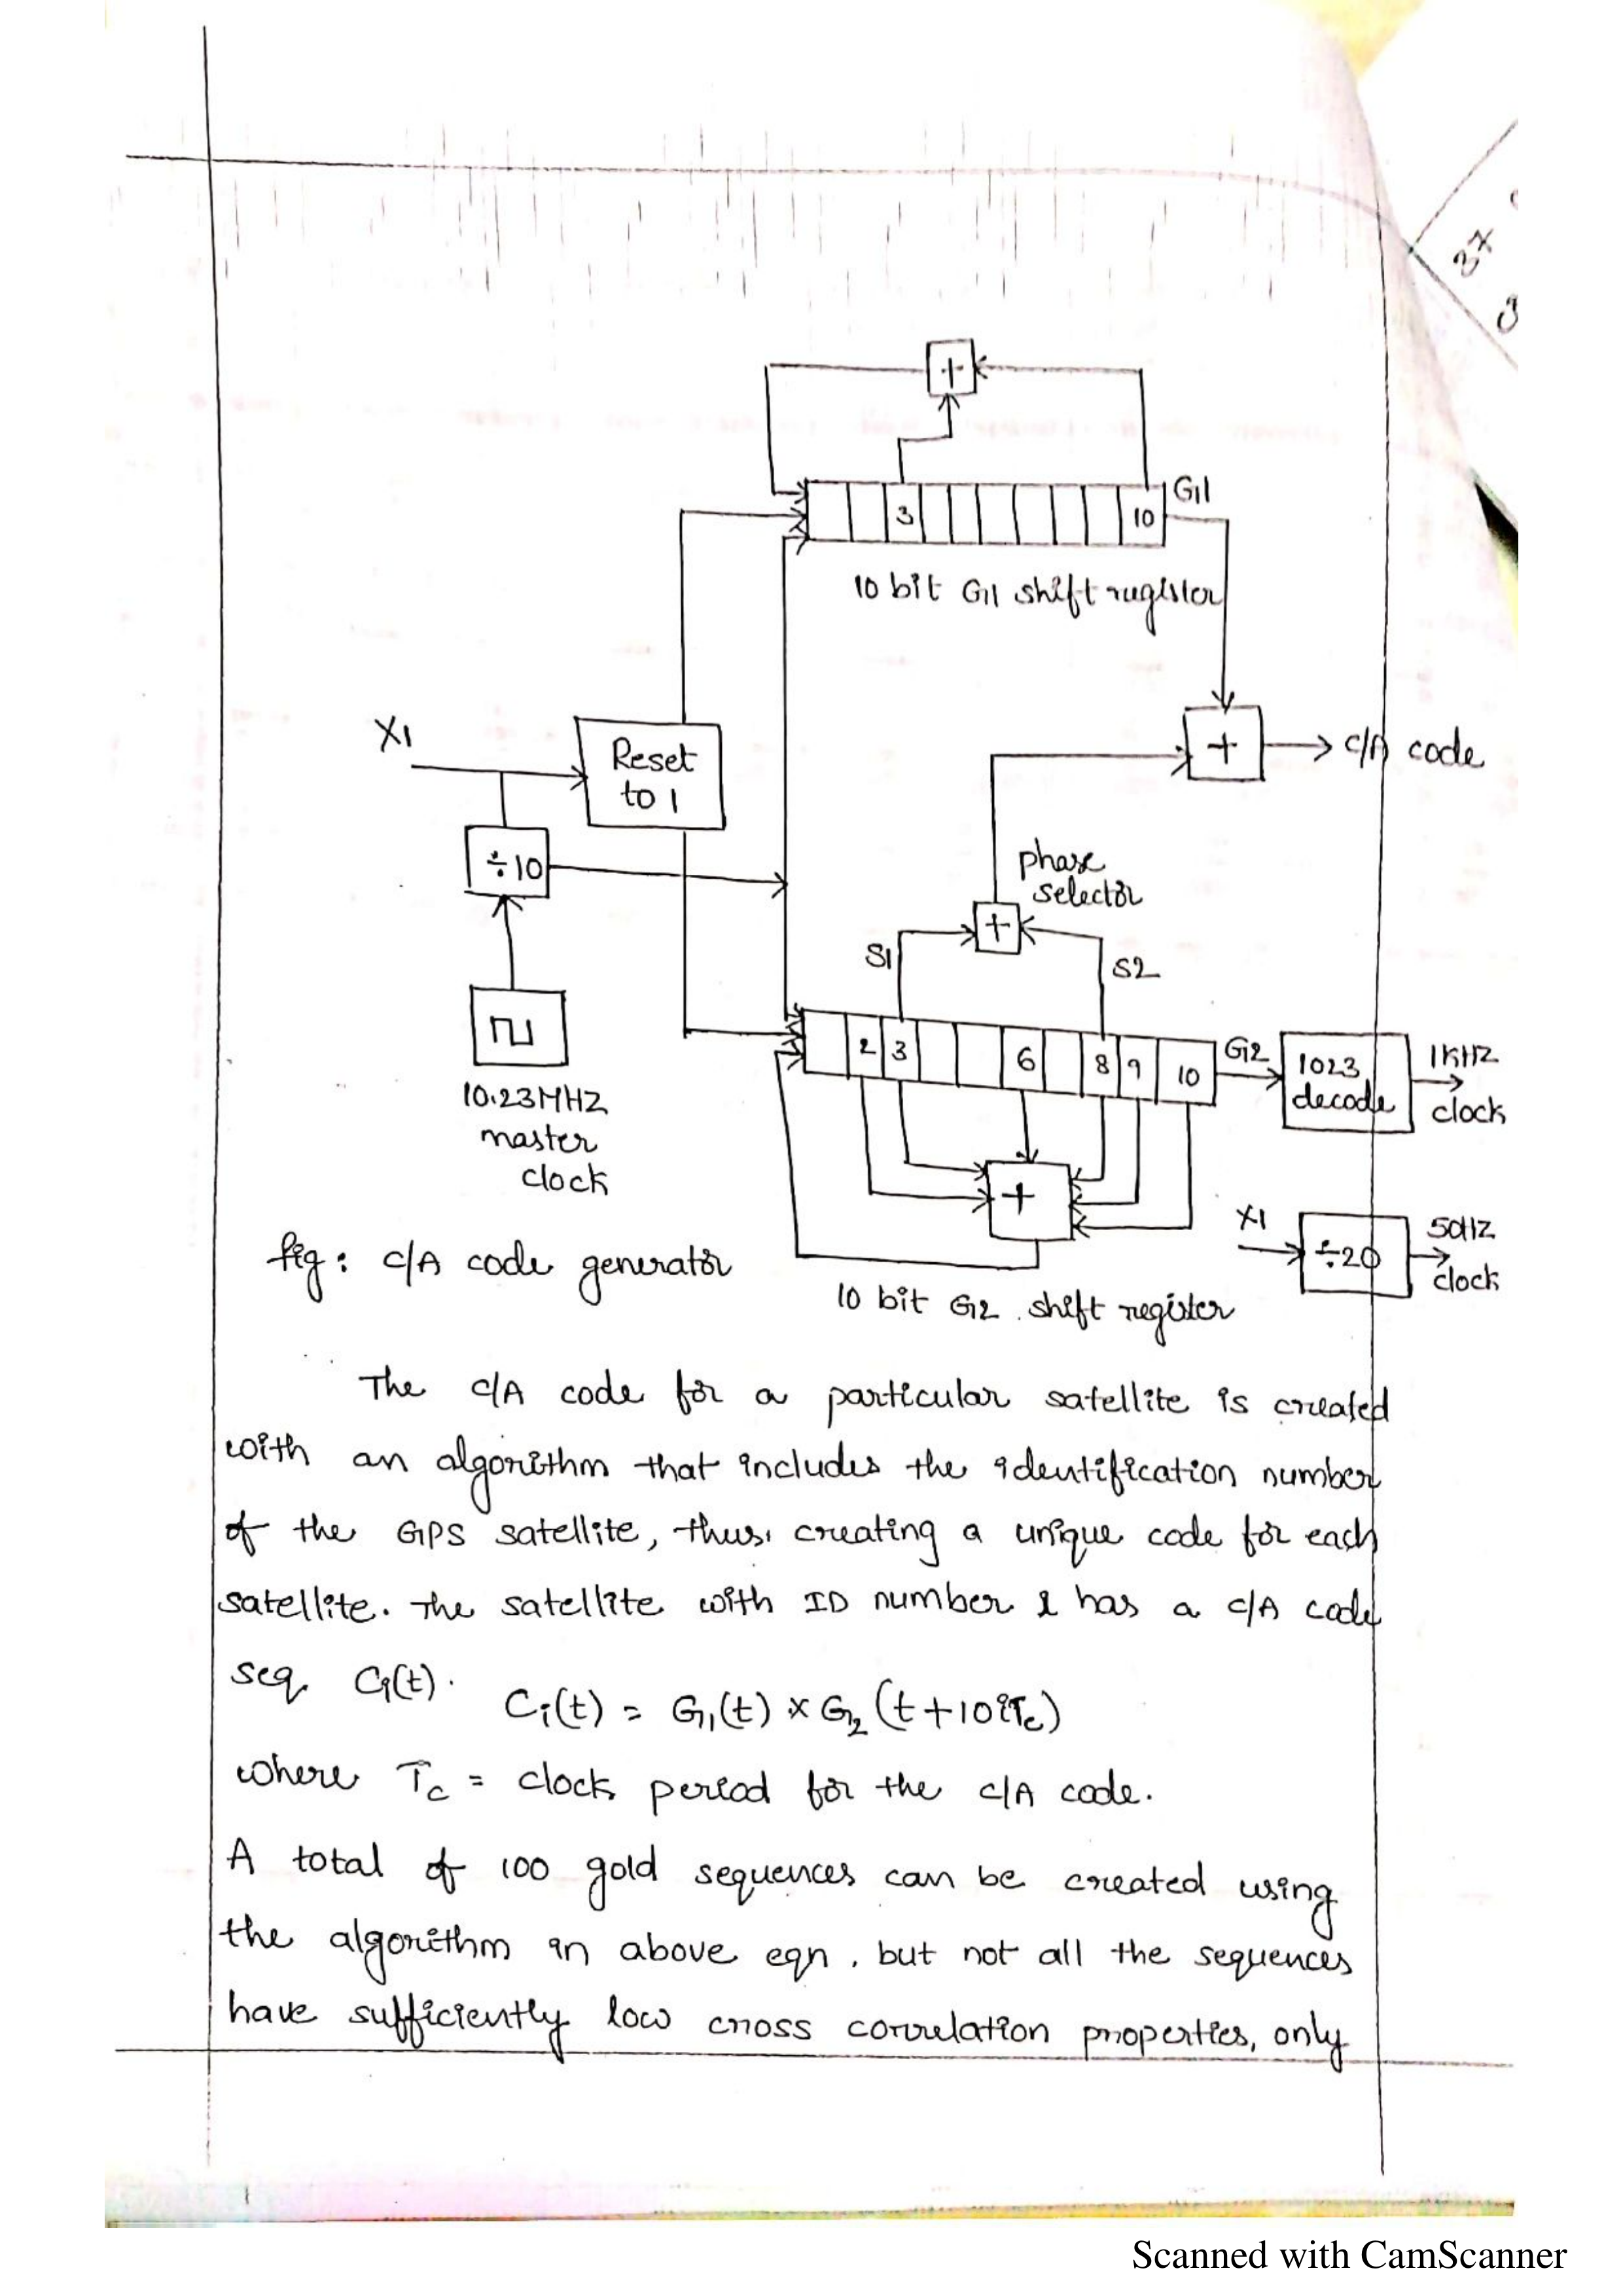 37
+
3
10
G1
10 bit G1 shift register
X1
Reset
to 1
+
C/A code
÷10
phase
selector
+
S1
S2
2
3
6
8
9
10
G2
1023
decode
1KHZ
clock
10.23MHZ
master
clock
+
X1
÷20
50HZ
clock
fig: C/A code generator
10 bit G2 shift register
The C/A code for a particular satellite is created
with an algorithm that includes the identification number
of the GPS satellite, thus, creating a unique code for each
satellite. The satellite with ID number i has a C/A code
seq Ci(t).
Ci(t) = G1(t) × G2 (t+10iTc)
where Tc = clock period for the C/A code.
A total of 100 gold sequences can be created using
the algorithm in above eqn, but not all the sequences
have sufficiently low cross correlation properties, only
Scanned with CamScanner